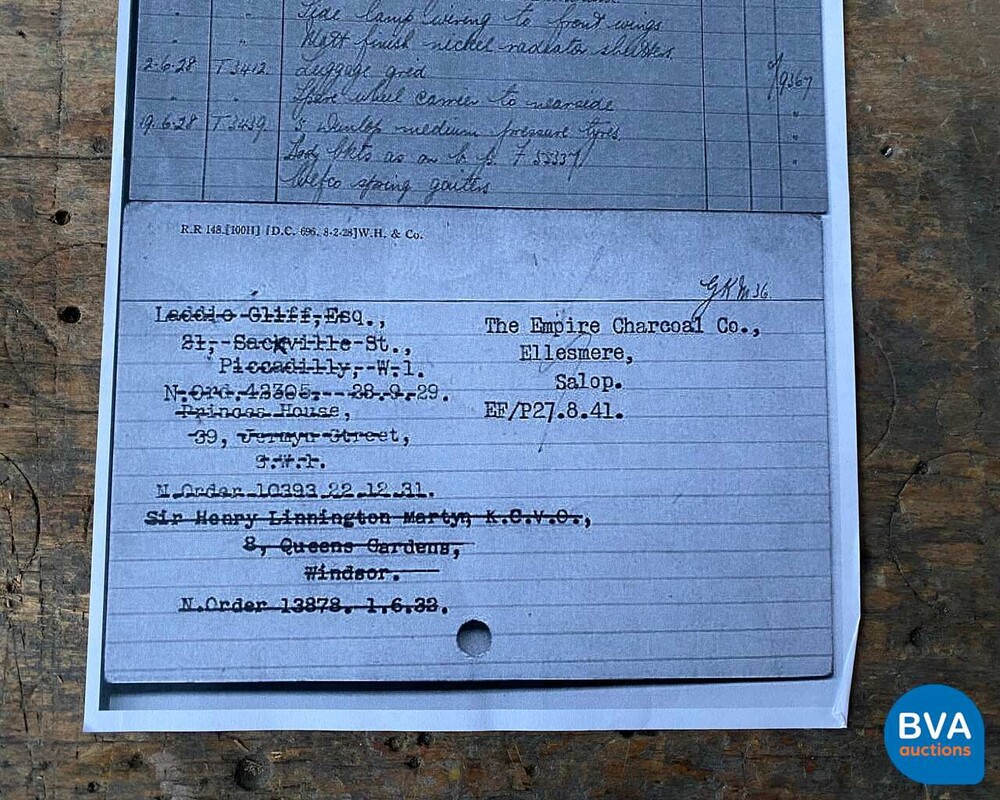 Side lamp wiring to front wings
" " Matt finish nickel radiator shutters.
2-6-28 T3412. Luggage grid 9367
" " Spare wheel carrier to nearside "
19.6.28 T3439. 5 Dunlop medium pressure tyres. "
Body bkts as on b. p. F 55337 "
Wefco spring gaiters
R.R 148.[100H] [D.C. 696. 8-2-28]W.H. & Co.
GKM 36.
Laddie Cliff,Esq.,
21, Sackville St.,
Piccadilly, W.1.
N.Ord.42305. 28.9.29.
Princes House,
39, Jermyn Street,
S.W.1.
N.Order 10393 22.12.31.
Sir Henry Linnington Martyn K.C.V.O.,
8, Queens Gardens,
Windsor.
N.Order 13878. 1.6.32.
The Empire Charcoal Co.,
Ellesmere,
Salop.
EF/P27.8.41.
BVA
auctions